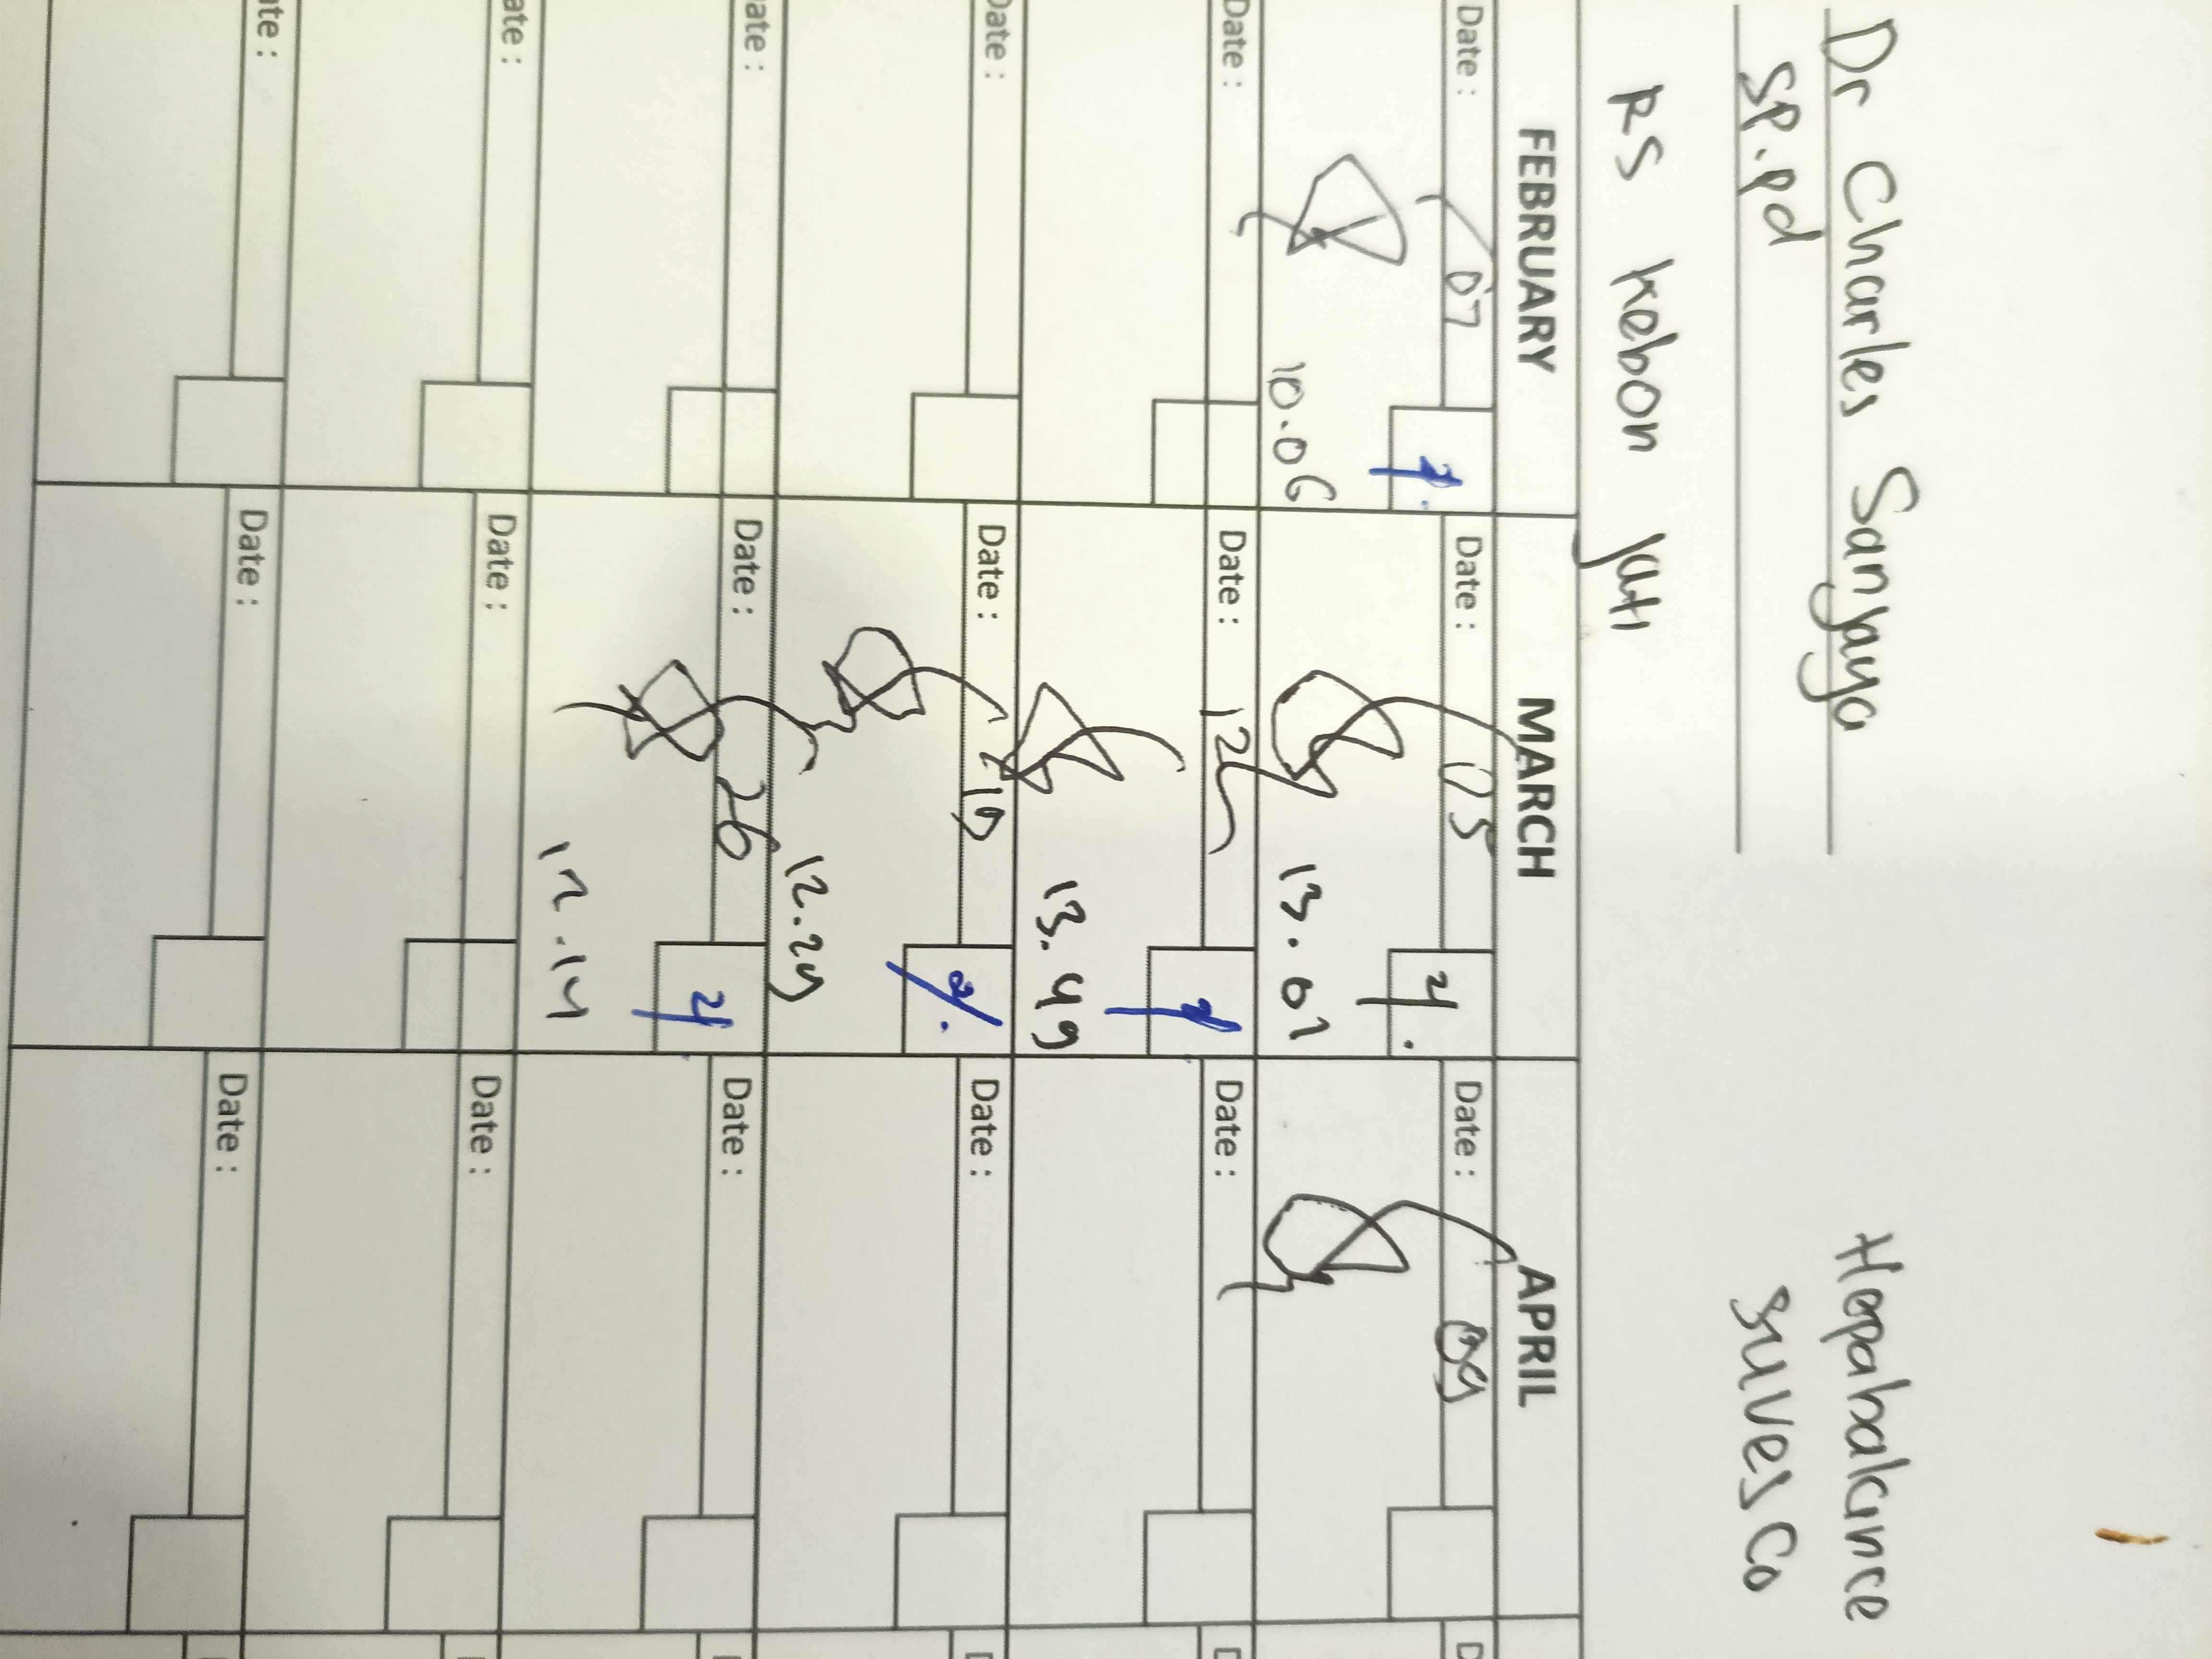 Dr Charles Sanjaya
Hepabalance
SP.Pd
suves co
RS Kebon Jati
FEBRUARY MARCH APRIL
Date : 07 Date : 05 Date : 09
10.06 13.01
Date : Date : 12 Date :
13.49
Date : Date : 19 Date :
12.24
Date : Date : 26 Date :
12.14
ate : Date : Date :
ate : Date : Date :